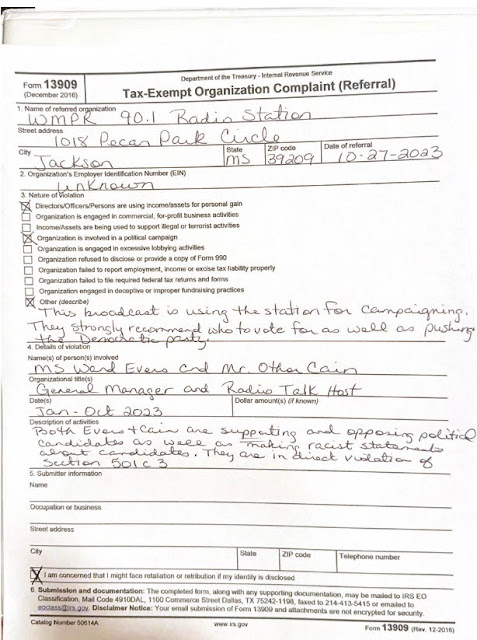 Form 13909
(December 2016)
Department of the Treasury - Internal Revenue Service
Tax-Exempt Organization Complaint (Referral)
1. Name of referred organization
WMPR 90.1 Radio Station
Street address
1018 Pecan Park Circle
City State ZIP code Date of referral
Jackson MS 39209 10-27-2023
2. Organization's Employer Identification Number (EIN)
Unknown
3. Nature of Violation
Directors/Officers/Persons are using income/assets for personal gain
Organization is engaged in commercial, for-profit business activities
Income/Assets are being used to support illegal or terrorist activities
Organization is involved in a political campaign
Organization is engaged in excessive lobbying activities
Organization refused to disclose or provide a copy of Form 990
Organization failed to report employment, income or excise tax liability properly
Organization failed to file required federal tax returns and forms
Organization engaged in deceptive or improper fundraising practices
Other (describe)
This broadcast is using the station for campaigning.
They strongly recommend who to vote for as well as pushing
the Democratic party.
4. Details of violation
Name(s) of person(s) involved
MS Wand Evers and Mr. Othor Cain
Organizational title(s)
General Manager and Radio Talk Host
Date(s) Dollar amount(s) (if known)
Jan - Oct 2023
Description of activities
Both Evers + Cain are supporting and opposing political
candidates as well as making racist statements
about candidates. They are in direct violation of
Section 501 c 3
5. Submitter information
Name
Occupation or business
Street address
City State ZIP code Telephone number
I am concerned that I might face retaliation or retribution if my identity is disclosed
6. Submission and documentation: The completed form, along with any supporting documentation, may be mailed to IRS EO
Classification, Mail Code 4910DAL, 1100 Commerce Street Dallas, TX 75242-1198, faxed to 214-413-5415 or emailed to
eoclass@irs.gov. Disclaimer Notice: Your email submission of Form 13909 and attachments are not encrypted for security.
Catalog Number 50614A www.irs.gov Form 13909 (Rev. 12-2016)